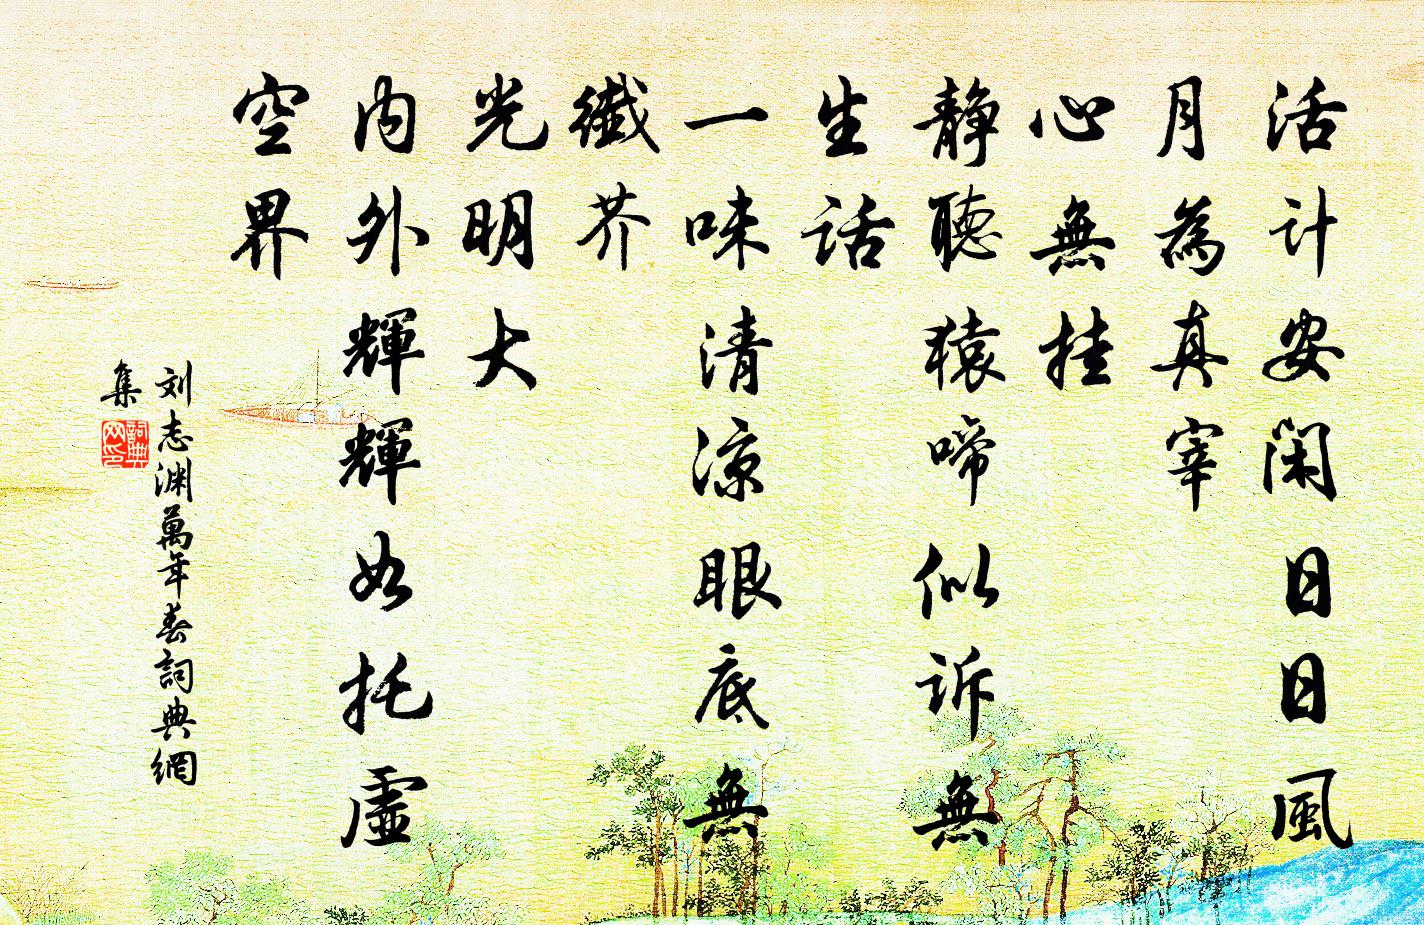 活计安闲日日風
月為真宰
心無挂
静聽猿啼似诉無
生话
一味清凉眼底無
纖芥
光明大
内外輝輝如托虚
空界
刘志渊萬年春詞典網
集
詞典
网印